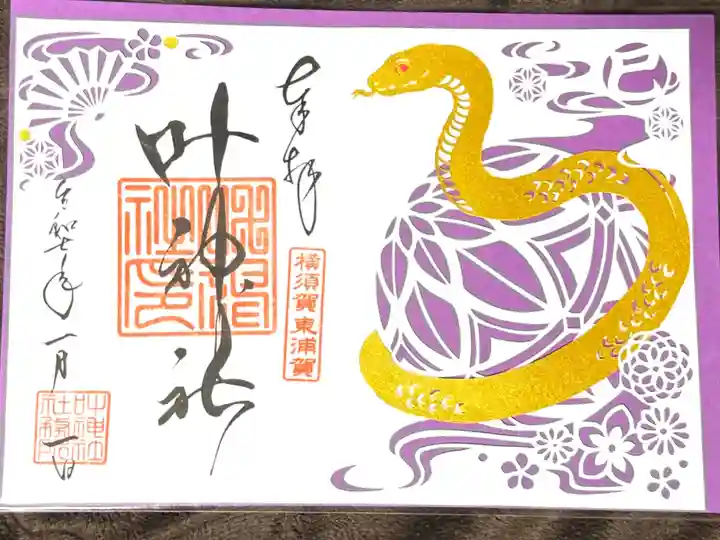 奉拝
横須賀東浦賀
叶神社
令和七年一月一日
叶神社
社務所印
巳